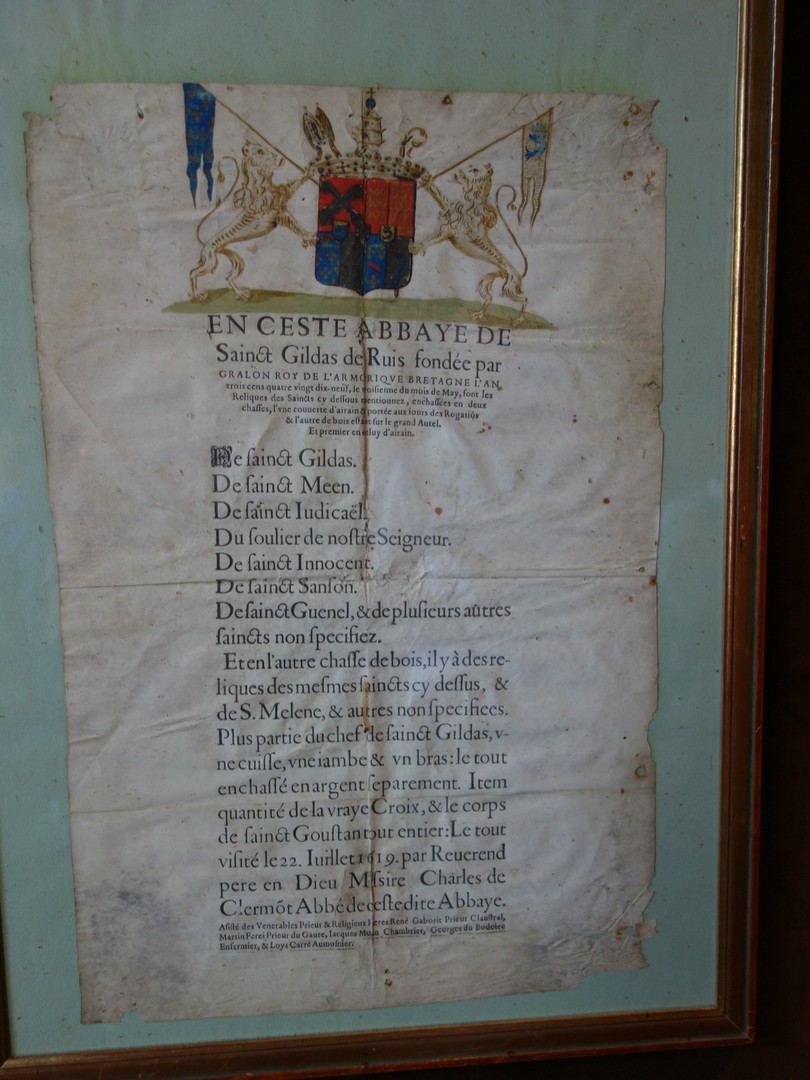 EN CESTE ABBAYE DE
Sainct Gildas de Ruis fondée par
GRALON ROY DE L'ARMORIQVE BRETAGNE L'AN
trois cens quatre vingt dix-neuf, le troisiesme du mois de May, sont les
Reliques des Saincts cy dessous mentionnez, enchassées en deux
chasses, l'vne couuerte d'airain & portée aux iours des Rogatiõs
& l'autre de bois estant sur le grand Autel.
Et premier en celuy d'airain.
De sainct Gildas.
De sainct Meen.
De sainct Iudicaël.
Du soulier de nostre Seigneur.
De sainct Innocent.
De sainct Sanson.
De sainct Guenel, & de plusieurs aûtres
saincts non specifiez.
Et en l'autre chasse de bois, il y à des re-
liques des mesmes saincts cy dessus, &
de S. Melene, & autres non specifiees.
Plus partie du chef de sainct Gildas, v-
ne cuisse, vne iambe & vn bras: le tout
enchassé en argent separement. Item
quantité de la vraye Croix, & le corps
de sainct Goustan tout entier: Le tout
visité le 22. Iuillet 1619. par Reuerend
pere en Dieu Messire Charles de
Clermõt Abbé de ceste dite Abbaye.
Asisté des Venerables Prieur & Religieux Freres René Gaborit Prieur Claustral,
Martin Perei Prieur du Gaure, Iacques Chambrier, Georges du Bodoice
Enfermier, & Loys Carré Aumosnier.